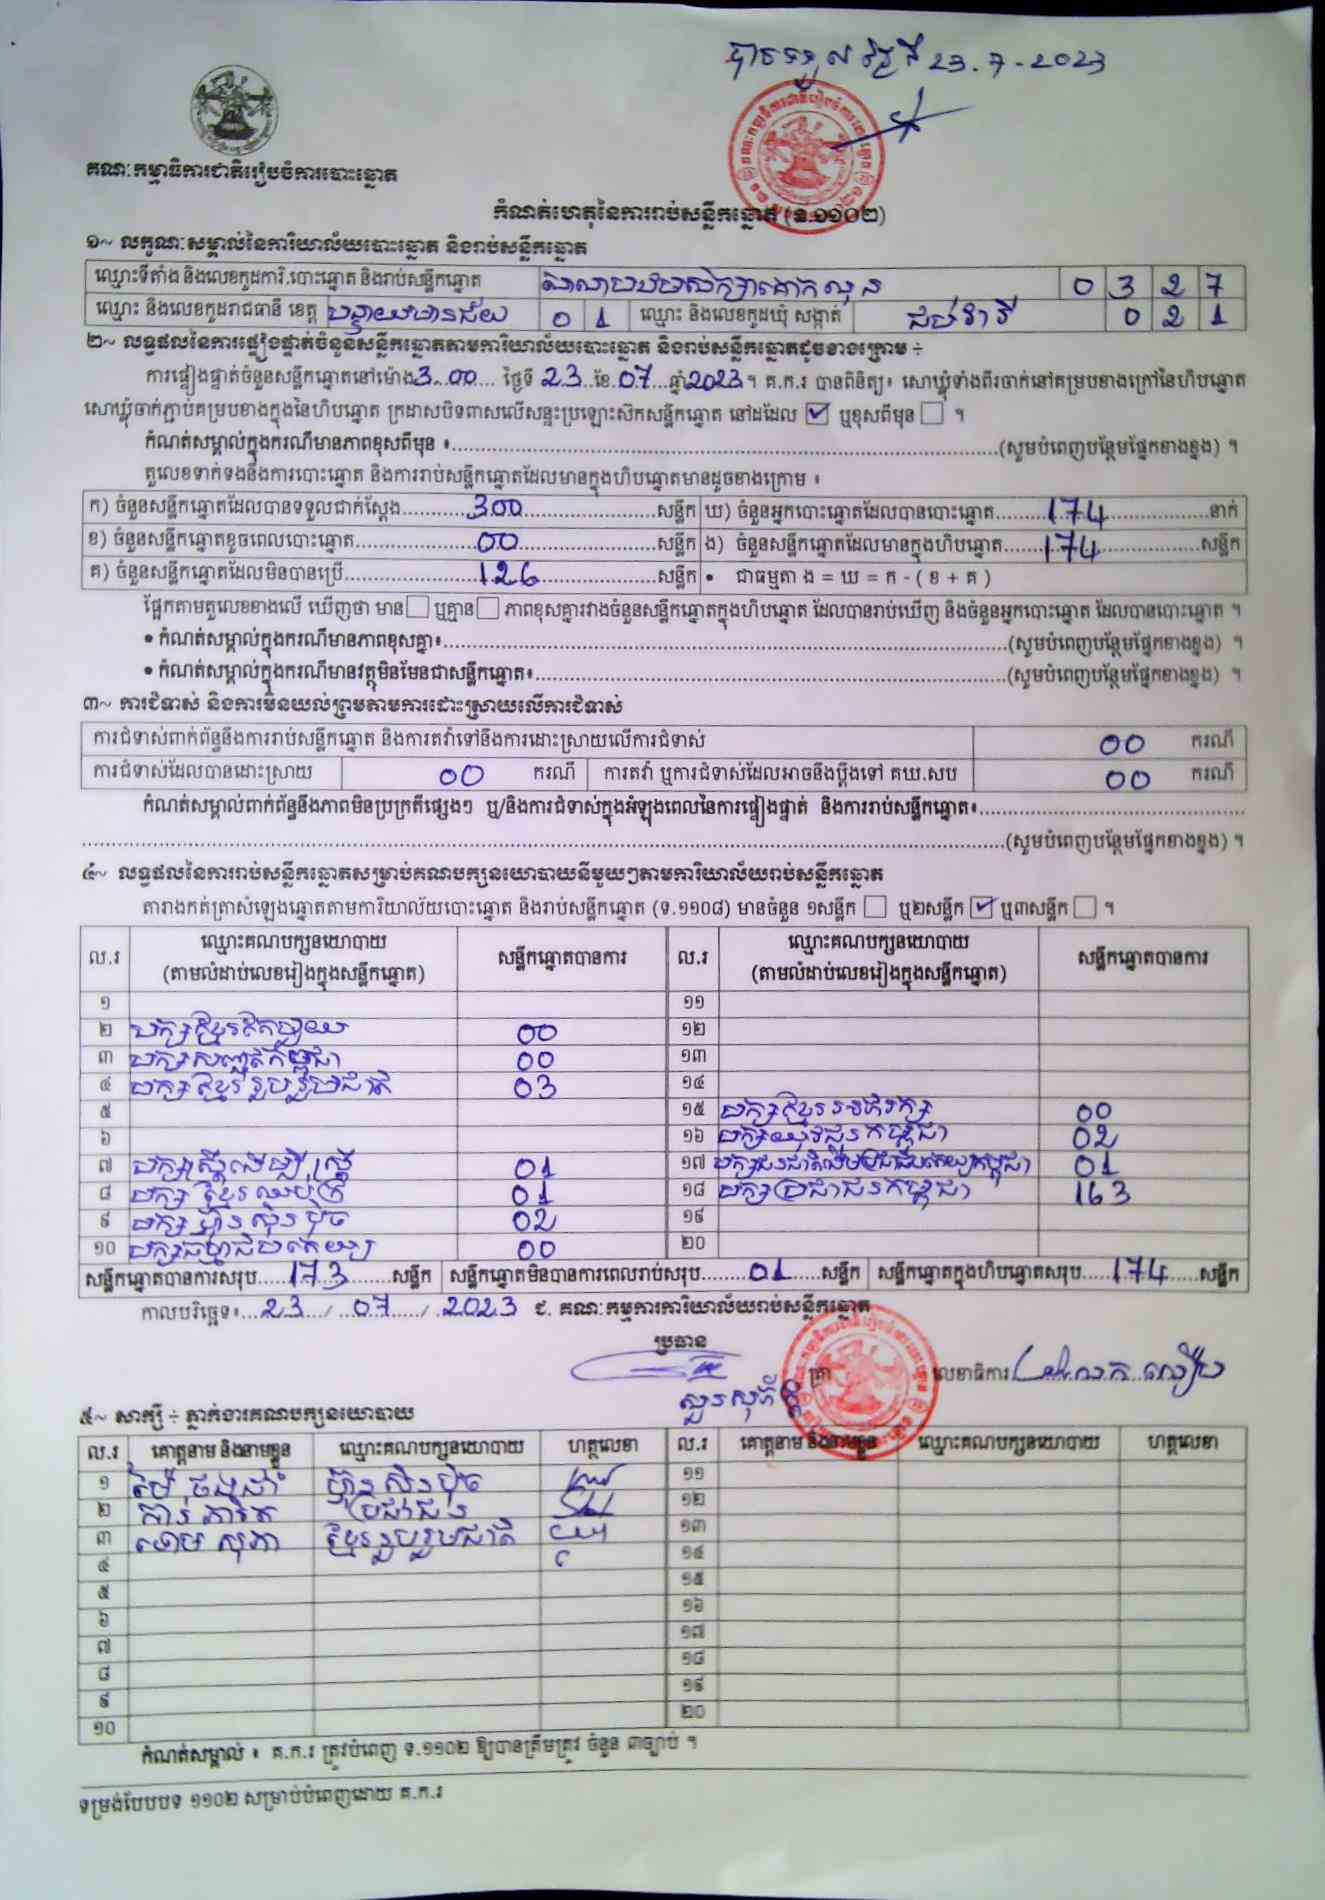 បានទទួល ថ្ងៃទី 23.7-2023
គណៈកម្មាធិការជាតិរៀបចំការបោះឆ្នោត
កំណត់ហេតុនៃការរាប់សន្លឹកឆ្នោត (ទ.១១០២)
១~ លក្ខណៈសម្គាល់នៃការិយាល័យបោះឆ្នោត និងរាប់សន្លឹកឆ្នោត
ឈ្មោះទីតាំង និងលេខកូដការិ.បោះឆ្នោត និងរាប់សន្លឹកឆ្នោត សាលាបឋមសិក្សាគោកលុន 0 3 2 7
ឈ្មោះ និងលេខកូដរាជធានី ខេត្ត បន្ទាយមានជ័យ 0 1 ឈ្មោះ និងលេខកូដឃុំ សង្កាត់ ជប់វារី 0 2 1
២~ លទ្ធផលនៃការផ្ទៀងផ្ទាត់ចំនួនសន្លឹកឆ្នោតតាមការិយាល័យបោះឆ្នោត និងរាប់សន្លឹកឆ្នោតដូចខាងក្រោម ÷
ការផ្ទៀងផ្ទាត់ចំនួនសន្លឹកឆ្នោតនៅម៉ោង 3.00 ថ្ងៃទី 23 ខែ 07 ឆ្នាំ 2023 ។ គ.ក.រ បានពិនិត្យ៖ សោឃ្លុំទាំងពីរចាក់នៅគម្របខាងក្រៅនៃហិបឆ្នោត
សោឃ្លុំចាក់ភ្ជាប់គម្របខាងក្នុងនៃហិបឆ្នោត ក្រដាសបិទពាសលើសន្ទះប្រឡោះស៊កសន្លឹកឆ្នោត នៅដដែល ☑ ឬខុសពីមុន ☐ ។
កំណត់សម្គាល់ក្នុងករណីមានភាពខុសពីមុន ៖ (សូមបំពេញបន្ថែមផ្នែកខាងខ្នង) ។
តួលេខទាក់ទងនឹងការបោះឆ្នោត និងការរាប់សន្លឹកឆ្នោតដែលមានក្នុងហិបឆ្នោតមានដូចខាងក្រោម ៖
ក) ចំនួនសន្លឹកឆ្នោតដែលបានទទួលជាក់ស្តែង 300 សន្លឹក ឃ) ចំនួនអ្នកបោះឆ្នោតដែលបានបោះឆ្នោត 174 នាក់
ខ) ចំនួនសន្លឹកឆ្នោតខូចពេលបោះឆ្នោត 00 សន្លឹក ង) ចំនួនសន្លឹកឆ្នោតដែលមានក្នុងហិបឆ្នោត 174 សន្លឹក
គ) ចំនួនសន្លឹកឆ្នោតដែលមិនបានប្រើ 126 សន្លឹក • ជាធម្មតា ង = ឃ = ក - ( ខ + គ )
ផ្អែកតាមតួលេខខាងលើ ឃើញថា មាន ☐ ឬគ្មាន ☐ ភាពខុសគ្នារវាងចំនួនសន្លឹកឆ្នោតក្នុងហិបឆ្នោត ដែលបានរាប់ឃើញ និងចំនួនអ្នកបោះឆ្នោត ដែលបានបោះឆ្នោត ។
• កំណត់សម្គាល់ក្នុងករណីមានភាពខុសគ្នា៖ (សូមបំពេញបន្ថែមផ្នែកខាងខ្នង) ។
• កំណត់សម្គាល់ក្នុងករណីមានវត្ថុមិនមែនជាសន្លឹកឆ្នោត៖ (សូមបំពេញបន្ថែមផ្នែកខាងខ្នង) ។
៣~ ការជំទាស់ និងការមិនយល់ព្រមតាមការដោះស្រាយលើការជំទាស់
ការជំទាស់ពាក់ព័ន្ធនឹងការរាប់សន្លឹកឆ្នោត និងការតវ៉ាទៅនឹងការដោះស្រាយលើការជំទាស់ 00 ករណី
ការជំទាស់ដែលបានដោះស្រាយ 00 ករណី ការតវ៉ា ឬការជំទាស់ដែលអាចនឹងប្តឹងទៅ គឃ.សប 00 ករណី
កំណត់សម្គាល់ពាក់ព័ន្ធនឹងភាពមិនប្រក្រតីផ្សេងៗ ឬ/និងការជំទាស់ក្នុងអំឡុងពេលនៃការផ្ទៀងផ្ទាត់ និងការរាប់សន្លឹកឆ្នោត៖
(សូមបំពេញបន្ថែមផ្នែកខាងខ្នង) ។
៤~ លទ្ធផលនៃការរាប់សន្លឹកឆ្នោតសម្រាប់គណបក្សនយោបាយនីមួយៗតាមការិយាល័យរាប់សន្លឹកឆ្នោត
តារាងកត់ត្រាសំឡេងឆ្នោតតាមការិយាល័យបោះឆ្នោត និងរាប់សន្លឹកឆ្នោត (ទ.១១០៨) មានចំនួន ១សន្លឹក ☐ ឬ២សន្លឹក ☑ ឬ៣សន្លឹក ☐ ។
ល.រ ឈ្មោះគណបក្សនយោបាយ (តាមលំដាប់លេខរៀងក្នុងសន្លឹកឆ្នោត) សន្លឹកឆ្នោតបានការ ល.រ ឈ្មោះគណបក្សនយោបាយ (តាមលំដាប់លេខរៀងក្នុងសន្លឹកឆ្នោត) សន្លឹកឆ្នោតបានការ
១ ១១
២ បក្សខ្មែរឥតក្បួយ 00 ១២
៣ បក្សសញ្ជាតិកម្ពុជា 00 ១៣
៤ បក្សខ្មែររួបរួមជាតិ 03 ១៤
៥ ១៥ បក្សខ្មែរអភិរក្ស 00
៦ ១៦ បក្សយុវជនកម្ពុជា 02
៧ បក្សស្ត្រីដើម្បីស្ត្រី 01 ១៧ បក្សជនជាតិដើមប្រជាធិបតេយ្យកម្ពុជា 01
៨ បក្សខ្មែរឈប់ក្រ 01 ១៨ បក្សប្រជាជនកម្ពុជា 163
៩ បក្សហ្វ៊ុនស៊ិនប៉ិច 02 ១៩
១០ បក្សធម្មាធិបតេយ្យ 00 ២០
សន្លឹកឆ្នោតបានការសរុប 173 សន្លឹក សន្លឹកឆ្នោតមិនបានការពេលរាប់សរុប 01 សន្លឹក សន្លឹកឆ្នោតក្នុងហិបឆ្នោតសរុប 174 សន្លឹក
កាលបរិច្ឆេទ៖ 23 / 07 / 2023 ជ. គណៈកម្មការការិយាល័យរាប់សន្លឹកឆ្នោត
ប្រធាន
ត្រា លេខាធិការ
៥~ សាក្សី ÷ ភ្នាក់ងារគណបក្សនយោបាយ
ល.រ គោត្តនាម និងនាមខ្លួន ឈ្មោះគណបក្សនយោបាយ ហត្ថលេខា ល.រ គោត្តនាម និងនាមខ្លួន ឈ្មោះគណបក្សនយោបាយ ហត្ថលេខា
១ ហ្វ៊ុនស៊ិនប៉ិច ១១
២ ប្រជាជន ១២
៣ ទោម សុភា ខ្មែររួបរួមជាតិ ១៣
៤ ១៤
៥ ១៥
៦ ១៦
៧ ១៧
៨ ១៨
៩ ១៩
១០ ២០
កំណត់សម្គាល់ ៖ គ.ក.រ ត្រូវបំពេញ ទ.១១០២ ឱ្យបានត្រឹមត្រូវ ចំនួន ៣ច្បាប់ ។
ទម្រង់បែបបទ ១១០២ សម្រាប់បំពេញដោយ គ.ក.រ